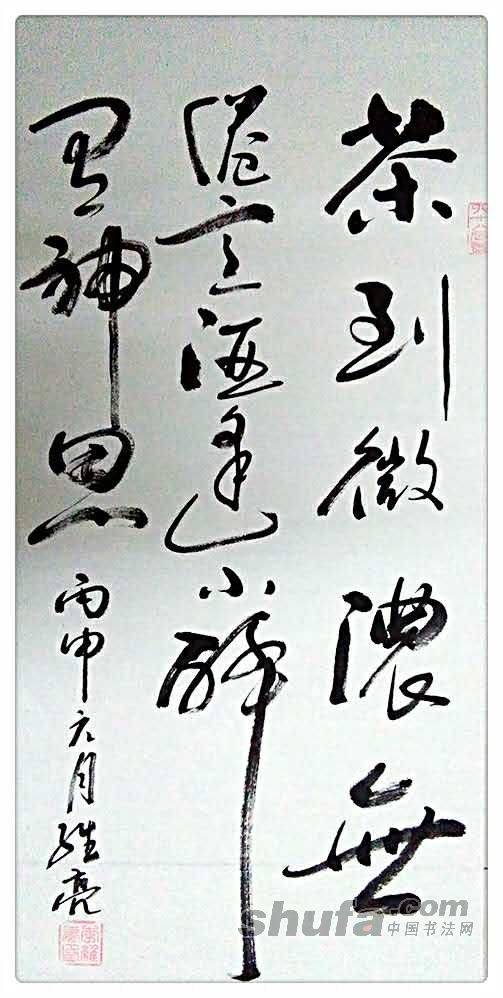 茶到微濃無
意酒逢小醉
有神思
丙申六月維亮
shufa.com
中国书法网